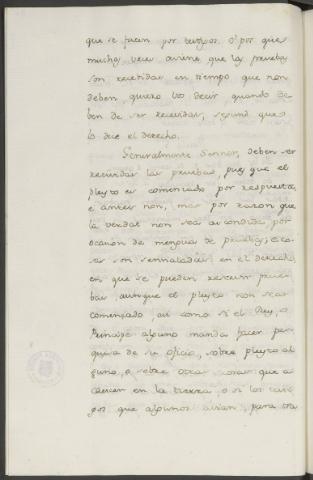 que se facen por testigos. O por que
muchas veces aviene que las pruebas
son recebidas en tiempo que non
deben, quiero vos decir quando de
ben de ser recevidas, segund que
lo dice el derecho.
Generalmente Sennor, deben ser
recevidas las pruebas, pues que el
pleyto es comenzado por respuesta,
e anteis non, mas por razon que
la verdat non sea ascondida por
ocasion de mengua de pruebas, co
sas son sennaladas en el derecho,
en que se pueden rescivir prue
bas, aunque el pleyto non sea
comenzado, asi como si el Rey, o
Principe alguno manda facer pes
quisa de su oficio, sobre pleyto al
guno, o sobre otras cosas que a
caescen en la tierra, o si los testi
gos que algunos avian, para tra